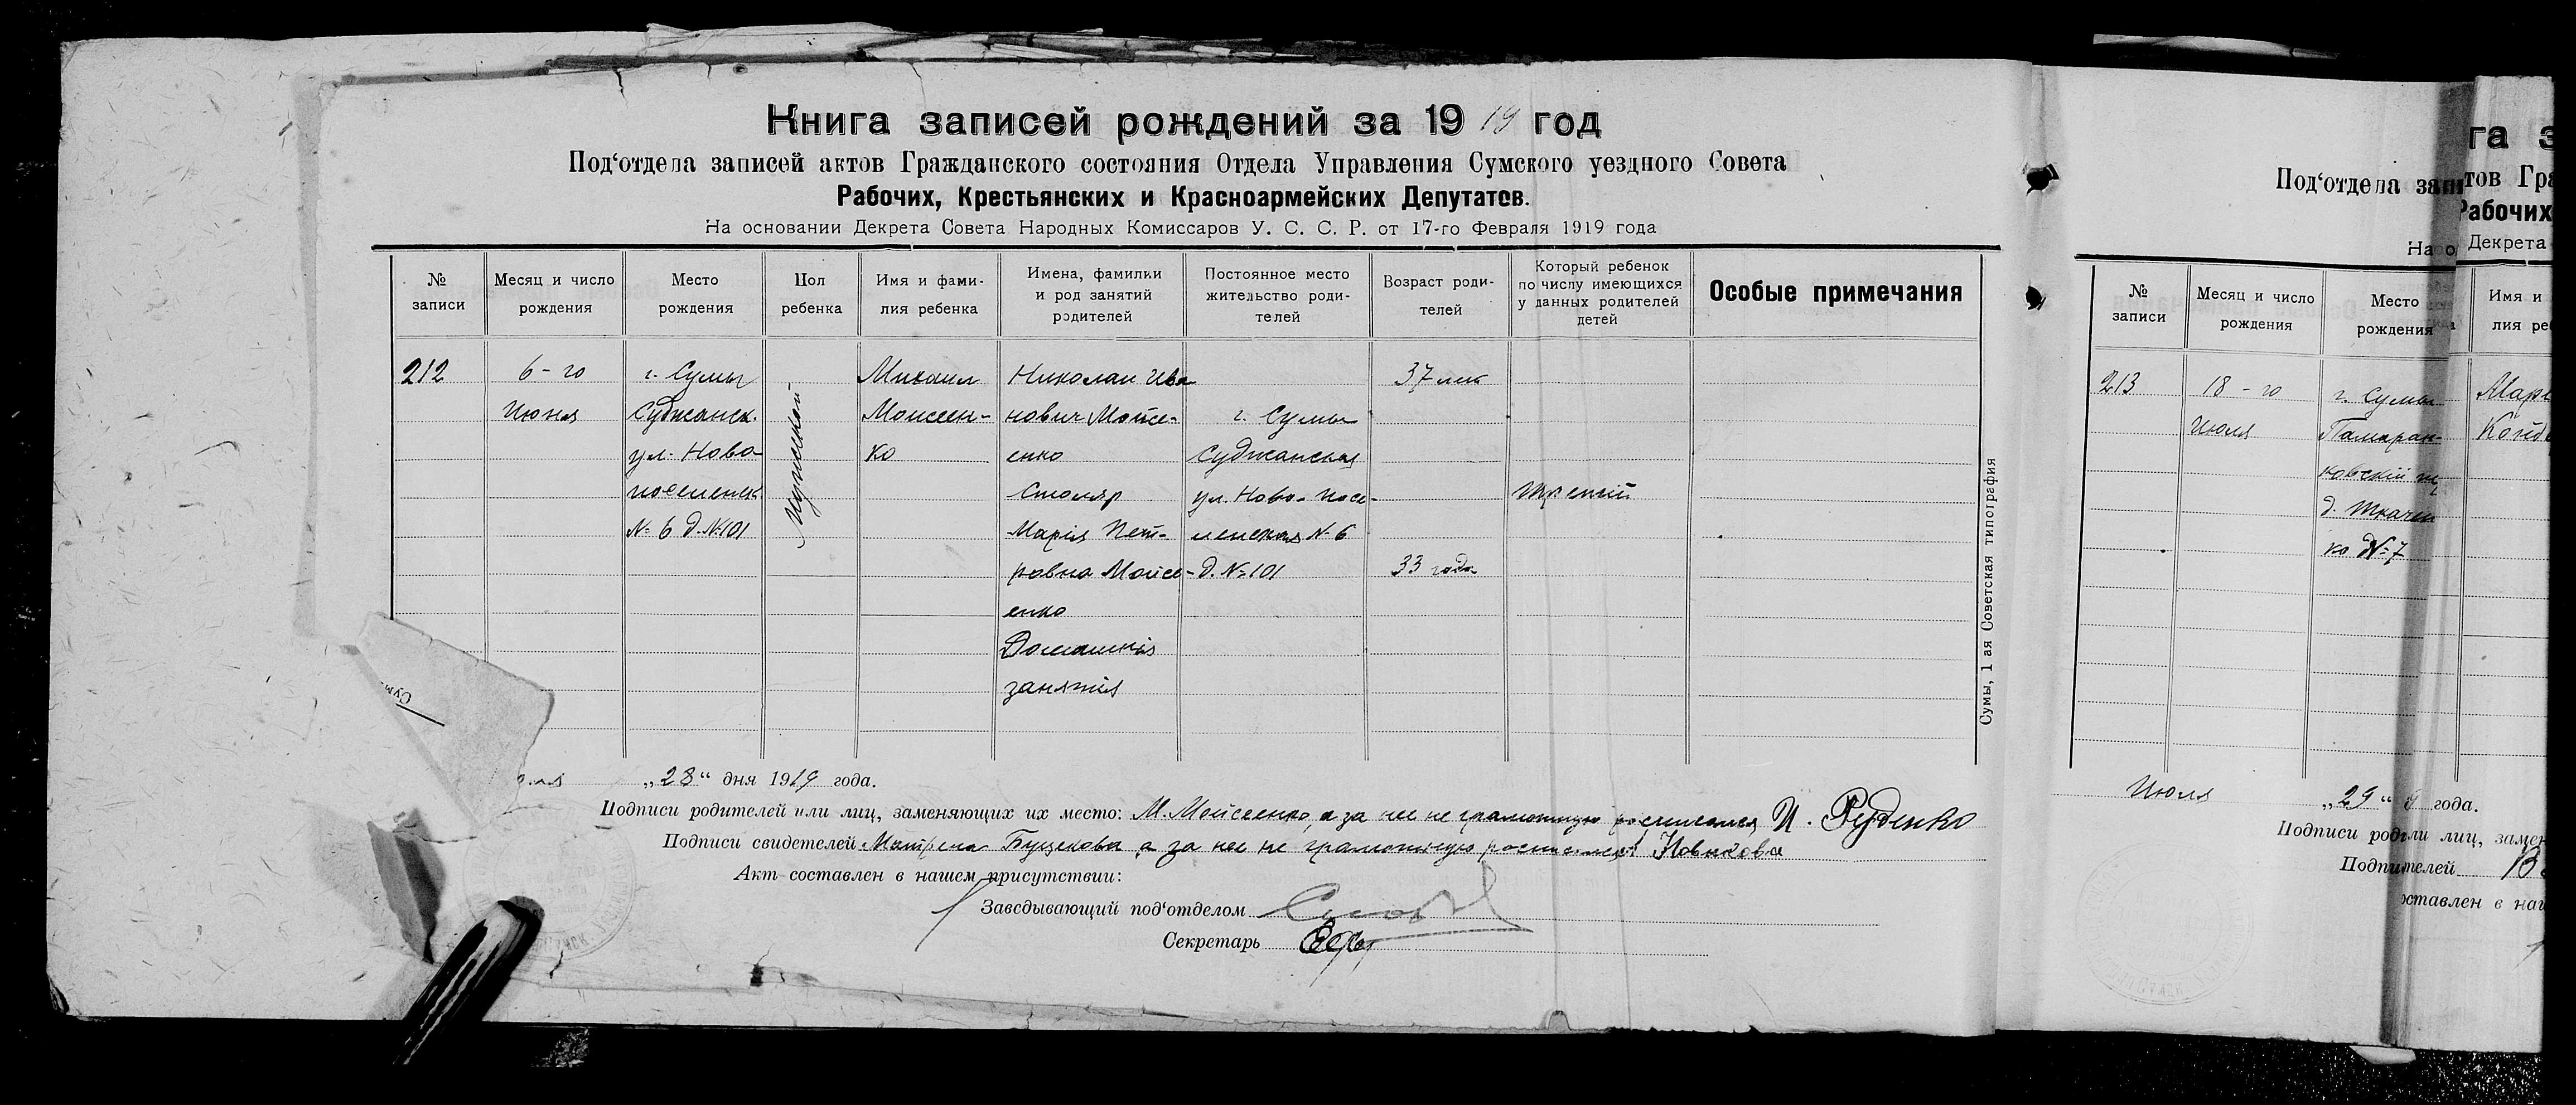 Книга записей рождений за 1919 год
Под‘отдела записей актов Гражданского состояния Отдела Управления Сумского уездного Совета
Рабочих, Крестьянских и Красноармейских Депутатов.
На основании Декрета Совета Народных Комиссаров У. С. С. Р. от 17-го Февраля 1919 года
№ записи
Месяц и число рождения
Место рождения
Пол ребенка
Имя и фами-
лия ребенка
Имена, фамилии
и род занятий
родителей
Постоянное место
жительство роди-
телей
Возраст роди-
телей
Который ребенок
по числу имеющихся
у данных родителей
детей
Особые примечания
212
6-го
Июня
г. Сумы
Суджанск.
ул. Ново-
поселенск.
№ 6 д. №101
Мужеской
Михаил
Моисеен-
ко
Николай Ива
нович Мойсе-
енко
Столяр
Марія Пет-
ровна Мойсе-
енко
Домашнія
занятія
г. Сумы
Суджанская
ул. Ново-посе-
ленская № 6
д. №101
37 лет
33 года
третий
„28“ дня 1919 года.
Подписи родителей или лиц, заменяющих их место: М. Мойсеенко, а за нее не грамотную росписался И. Руденко
Подписи свидетелей Матрена Бущекова а за нее не грамотную Новикова
Акт составлен в нашем присутствии:
Заведывающий под‘отделом
Секретарь
Сумы, 1 ая Советская типография
Сум
Под‘отдела запи
На о
№ записи
Месяц и число рождения
Место рождения
213
18-го
Июля
г. Сумы
ковскій
д. Ткачен
ко № 7
Июля „29“ года.
Подписи род
га з
тов Гра
Рабочих
Декрета
Имя и
лия реб
Мари
ли лиц, замен
телей
ставлен в наш